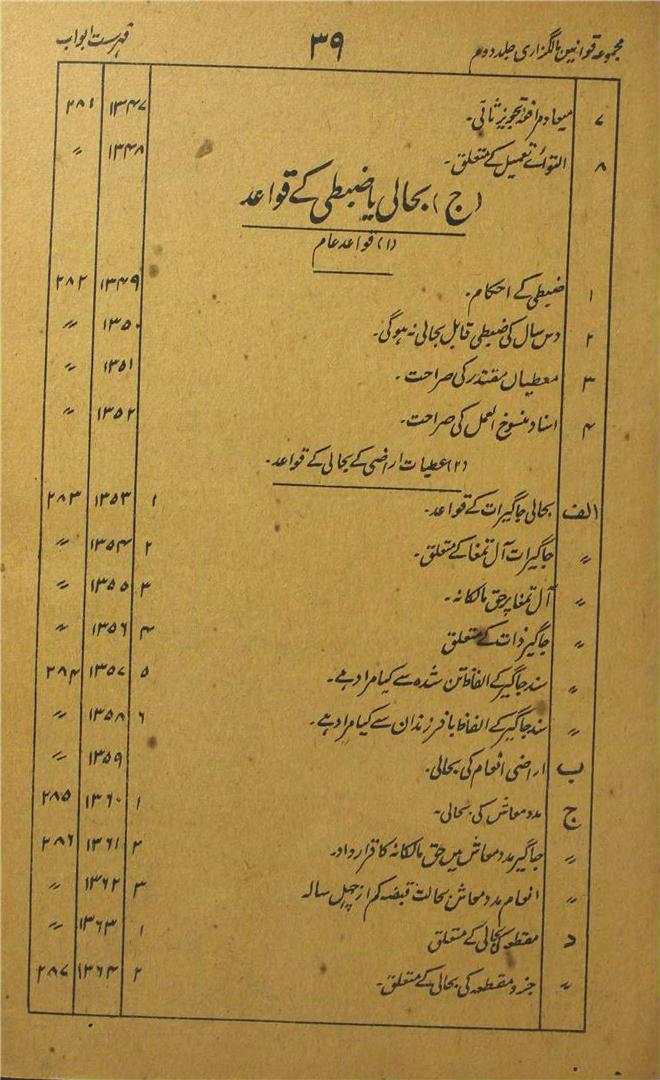 مجموعہ قوانین مالگزاری جلد دوم ۳۹ فہرست ابواب
۷ میعاد مرافعہ تجویز ثانی۔ ۱۳۴۷ ۲۸۱
۸ التوائے تعمیل کے متعلق۔ ۱۳۴۸ 〃
(ج) بحالی یا ضبطی کے قواعد
(۱) قواعد عام
۱ ضبطی کے احکام۔ ۱۳۴۹ ۲۸۲
۲ دس سال کی ضبطی قابل بحالی نہ ہوگی۔ ۱۳۵۰ 〃
۳ معطیان مقتدر کی صراحت۔ ۱۳۵۱ 〃
۴ اسناد منسوخ العمل کی صراحت۔ ۱۳۵۲ 〃
(۲) عطیات اراضی کے بحالی کے قواعد۔
الف بحالی جاگیرات کے قواعد۔ ۱ ۱۳۵۳ ۲۸۳
〃 جاگیرات آل تمغا کے متعلق۔ ۲ ۱۳۵۴ 〃
〃 آل تمغا پر حق مالکانہ۔ ۳ ۱۳۵۵ 〃
〃 جاگیر ذات کے متعلق ۴ ۱۳۵۶ 〃
〃 سند جاگیر کے الفاظ تن شدہ سے کیا مراد ہے۔ ۵ ۱۳۵۷ ۲۸۴
〃 سند جاگیر کے الفاظ با فرزندان سے کیا مراد ہے۔ ۶ ۱۳۵۸ 〃
ب اراضی انعام کی بحالی۔ ۱۳۵۹ 〃
ج مدد معاش کی بحالی۔ ۱ ۱۳۶۰ ۲۸۵
〃 جاگیر مدد معاش میں حق مالکانہ کا قرارداد۔ ۲ ۱۳۶۱ ۲۸۶
〃 انعام مدد معاش بحالت قبضہ کم از چہل سالہ ۳ ۱۳۶۲ 〃
د مقطعہ کی بحالی کے متعلق ۱ ۱۳۶۳ 〃
〃 جزو مقطعہ کی بحالی کے متعلق۔ ۲ ۱۳۶۴ ۲۸۷